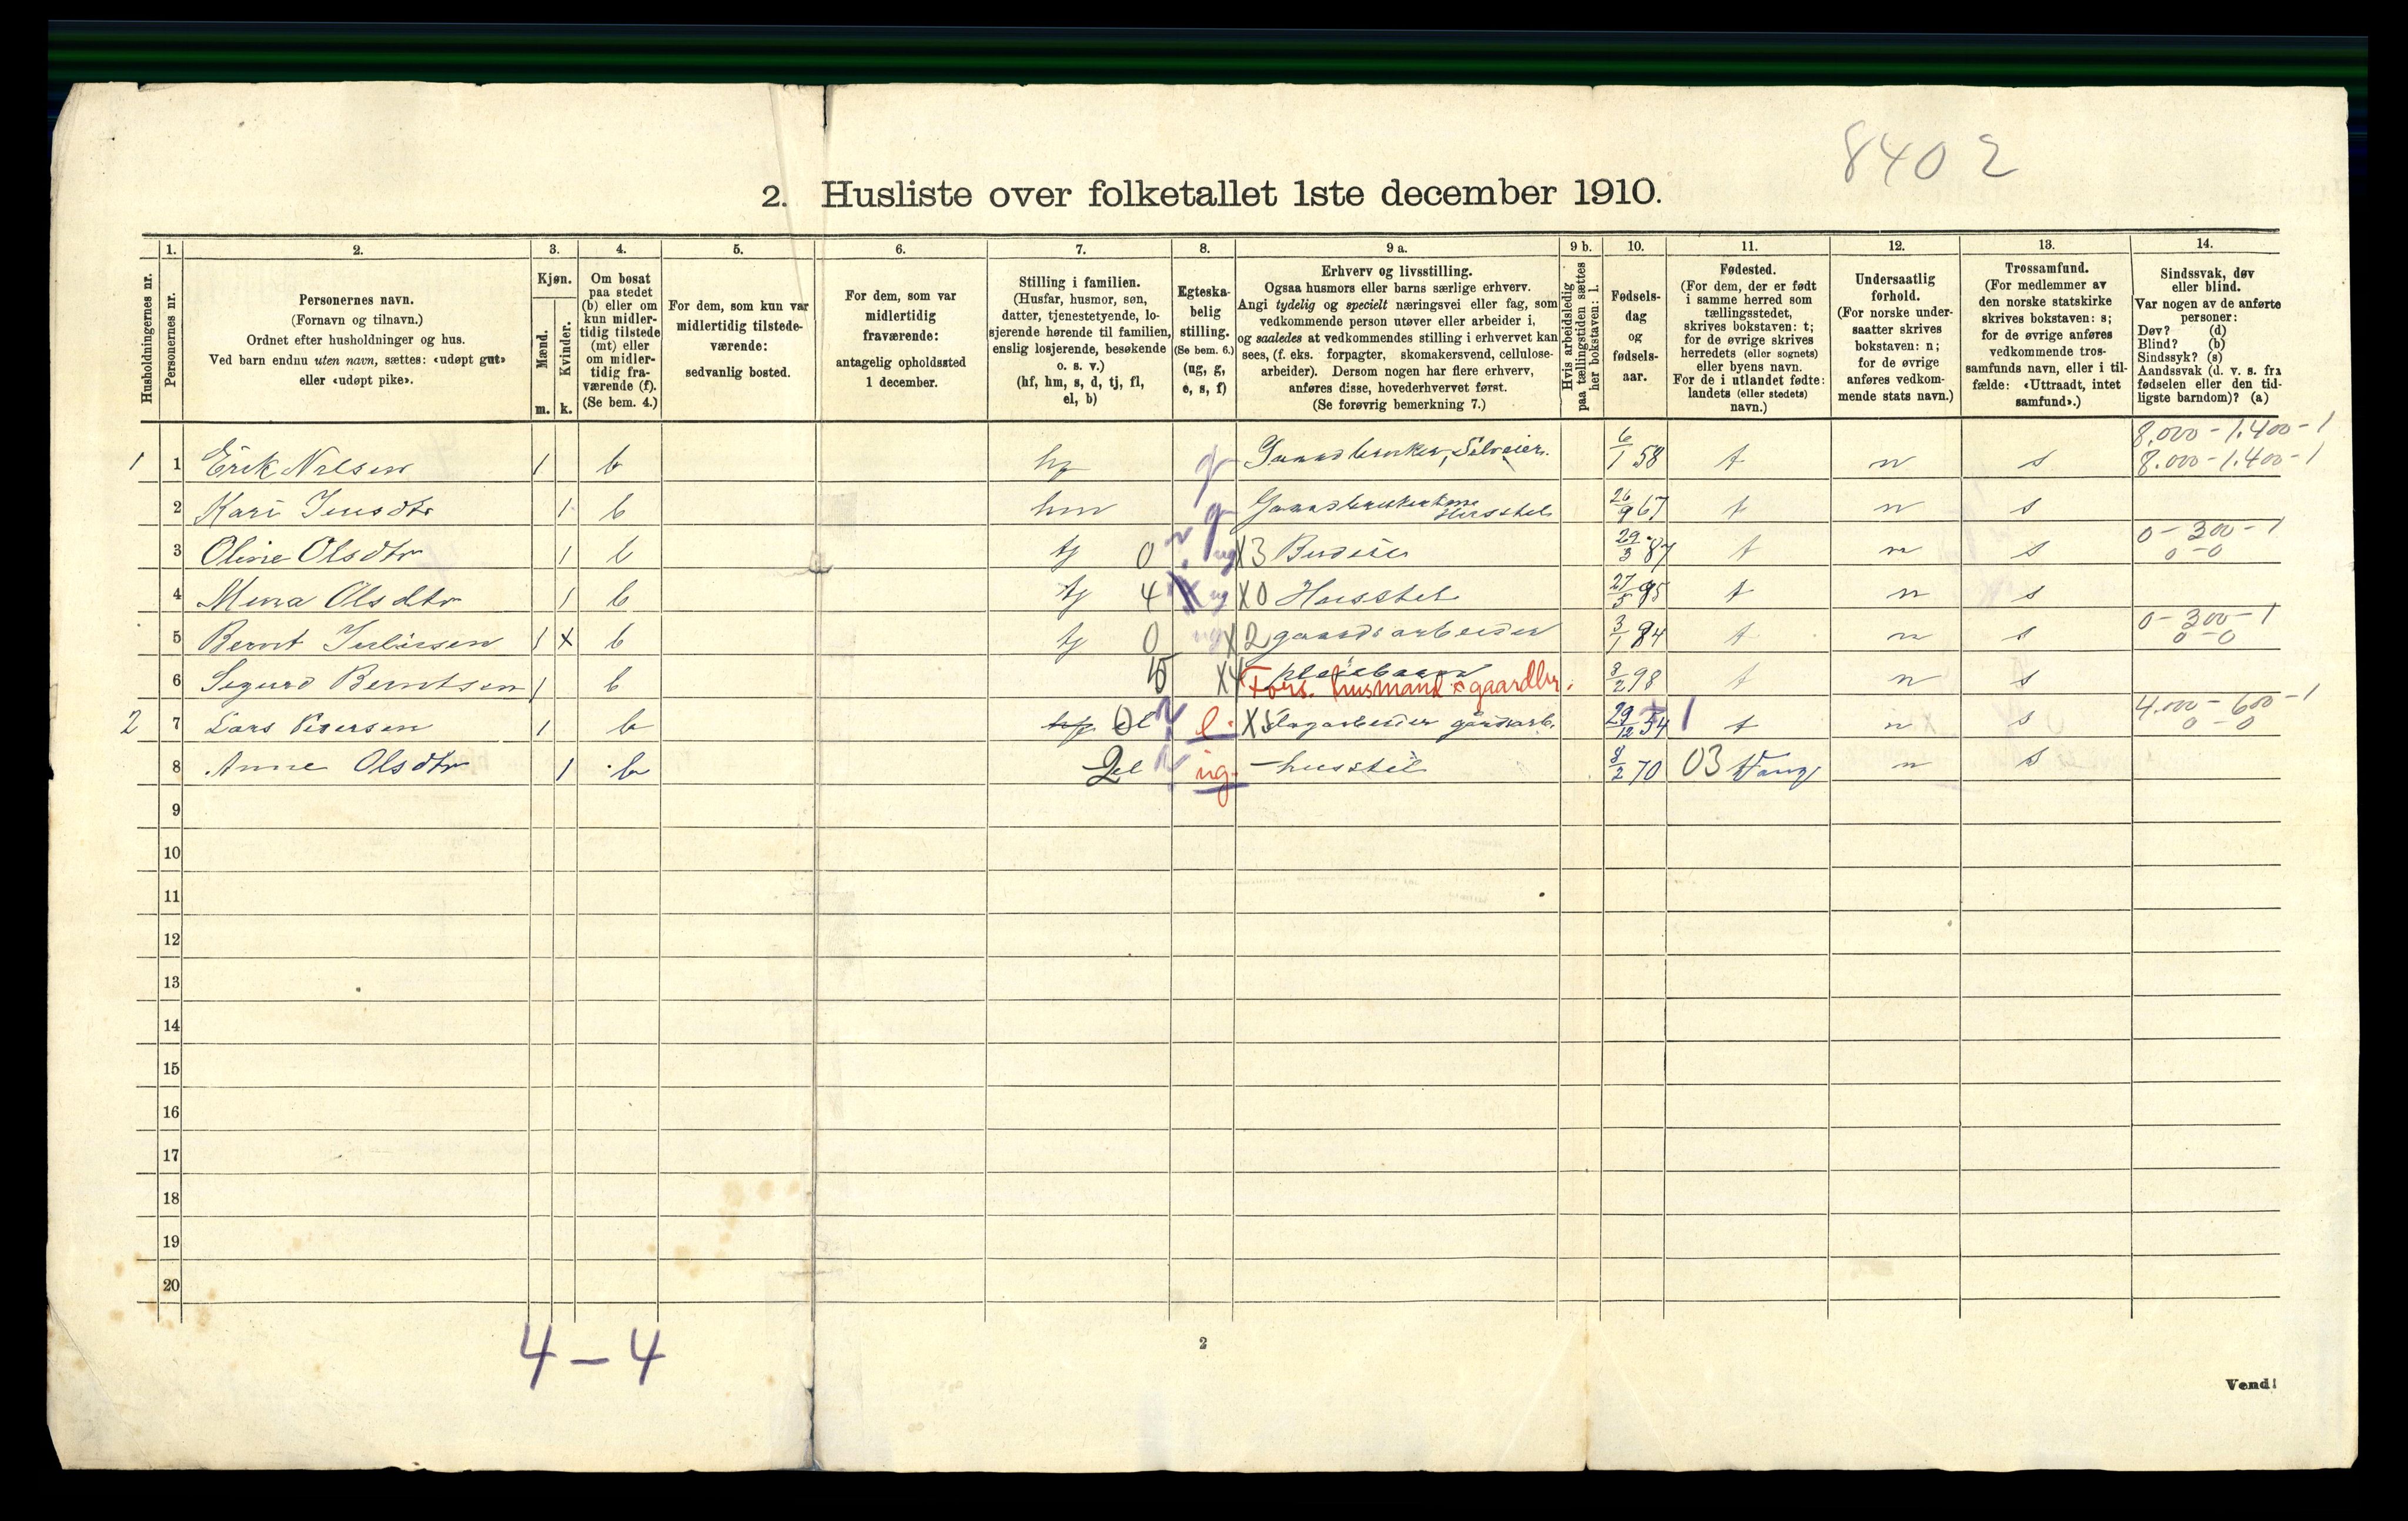 8402
2. Husliste over folketallet 1ste december 1910.
Husholdningernes nr.
1.
Personernes nr.
2.
Personernes navn.
(Fornavn og tilnavn.)
Ordnet efter husholdninger og hus.
Ved barn endnu uten navn, sættes: «udøpt gut»
eller «udøpt pike».
3.
Kjøn.
Mænd.
Kvinder.
m. k.
4.
Om bosat
paa stedet
(b) eller om
kun midler-
tidig tilstede
(mt) eller
om midler-
tidig fra-
værende (f).
(Se bem. 4.)
5.
For dem, som kun var
midlertidig tilstede-
værende:
sedvanlig bosted.
6.
For dem, som var
midlertidig
fraværende:
antagelig opholdssted
1 december.
7.
Stilling i familien.
(Husfar, husmor, søn,
datter, tjenestetyende, lo-
sjerende hørende til familien,
enslig losjerende, besøkende
o. s. v.)
(hf, hm, s, d, tj, fl,
el, b)
8.
Egteska-
belig
stilling.
(Se bem. 6.)
(ug, g,
e, s, f)
9 a.
Erhverv og livsstilling.
Ogsaa husmors eller barns særlige erhverv.
Angi tydelig og specielt næringsvei eller fag, som
vedkommende person utøver eller arbeider i,
og saaledes at vedkommendes stilling i erhvervet kan
sees, (f. eks. forpagter, skomakersvend, cellulose-
arbeider). Dersom nogen har flere erhverv,
anføres disse, hovederhvervet først.
(Se forøvrig bemerkning 7.)
9 b.
Hvis arbeidsledig
paa tællingstiden sættes
her bokstaven: l.
10.
Fødsels-
dag
og
fødsels-
aar.
11.
Fødested.
(For dem, der er født
i samme herred som
tællingsstedet,
skrives bokstaven: t;
for de øvrige skrives
herredets (eller sognets)
eller byens navn.
For de i utlandet fødte:
landets (eller stedets)
navn.)
12.
Undersaatlig
forhold.
(For norske under-
saatter skrives
bokstaven: n;
for de øvrige
anføres vedkom-
mende stats navn.)
13.
Trossamfund.
(For medlemmer av
den norske statskirke
skrives bokstaven: s;
for de øvrige anføres
vedkommende tros-
samfunds navn, eller i til-
fælde: «Uttraadt, intet
samfund».)
14.
Sindssvak, døv
eller blind.
Var nogen av de anførte
personer:
Døv? (d)
Blind? (b)
Sindssyk? (s)
Aandssvak (d. v. s. fra
fødselen eller den tid-
ligste barndom)? (a)
8.000 - 1.400 - 1
1 1 Erik Nilsen 1 b hf g Gaardbruker, Selveier. 6/1 58 t n s 8.000 - 1.400 - 1
2 Kari Jensdtr 1 b hm g 26/9 67 t n s
0 - 300 - 1
3 Oline Olsdtr 1 b tj 0 ug X3 Budeie 29/3 87 t n s 0 - 0
4 Olsdtr 1 b tj 4 ug X0 Husstel 27/5 95 t n s
0 - 300 - 1
5 Bernt Juliussen 1 X b tj 0 ug X2 gaardsarbeider 3/1 84 t n s 0 - 0
6 Sigurd Berntsen 1 b X4 pleiebarn 3/2 98 t n s
Fors. husmand x gaardbr.
4.000 - 600 - 1
2 7 Lars Pedersen 1 b el e. X5 dagarbeider gårdsarb. 29/12 54 t n s 0 - 0
8 Anne Olsdtr 1 b el ug. - husstel 8/2 70 03 Vang n s
9
10
11
12
13
14
15
16
17
18
19
20
4 - 4
2
Vend!